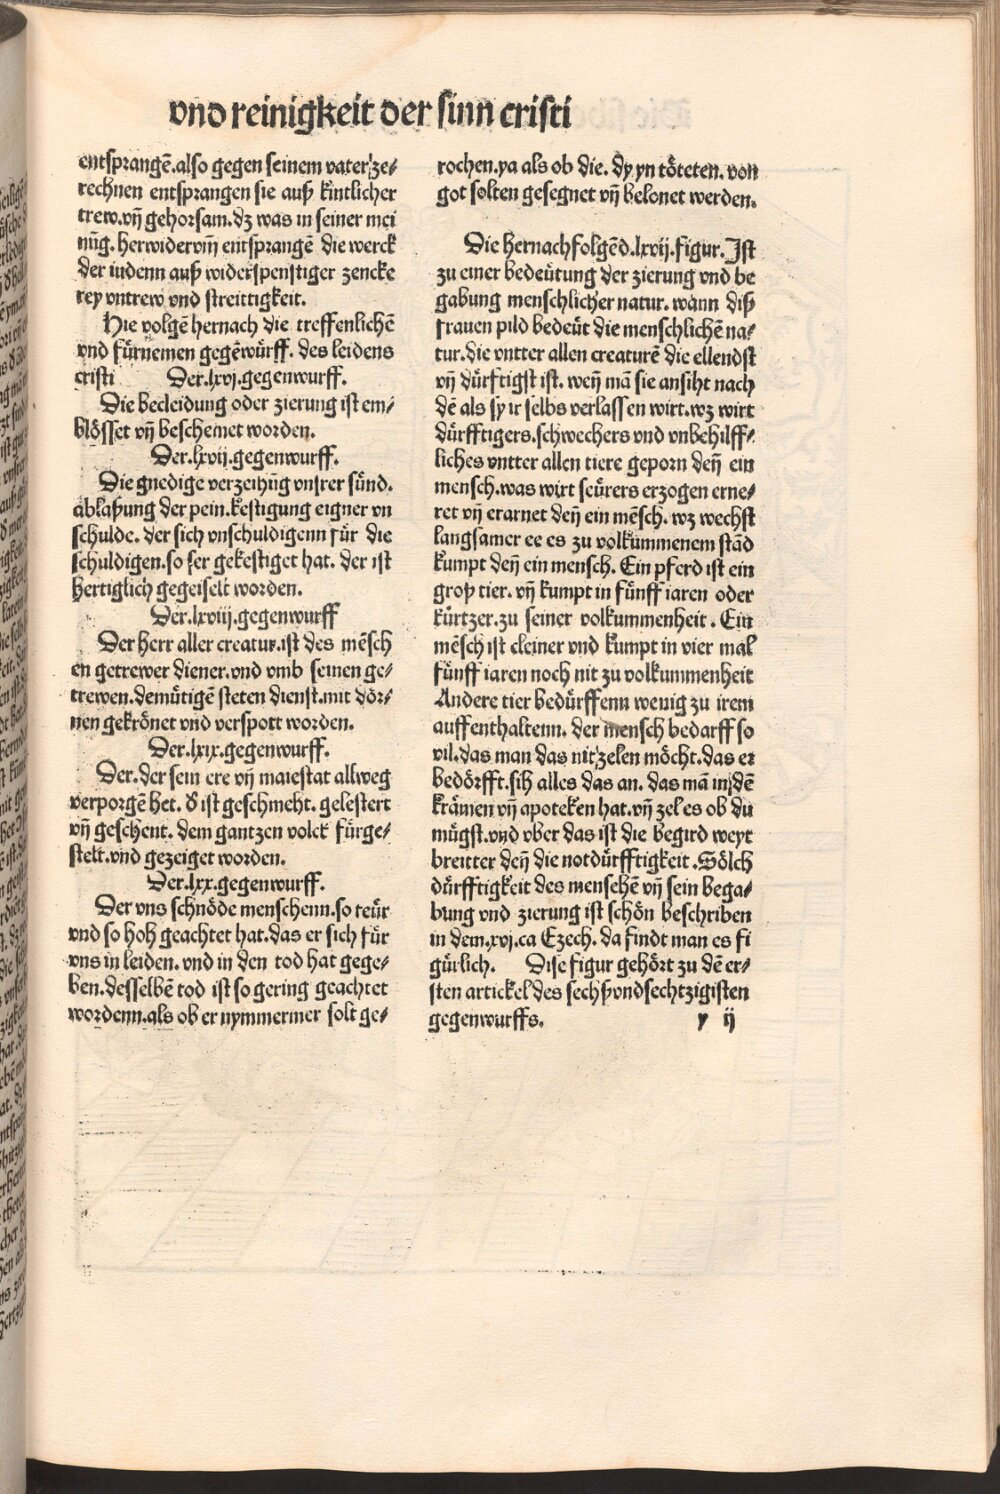 vnd reinigkeit der sinn cristi
entsprangē.also gegen seinem vater ze⸗
rechnen entsprangen sie auß kintlicher
trew.vn̄ gehorsam.dz was in seiner mei
nūg. herwidervm̄ entsprangē die werck
der iudenn auß widerspenstiger zencke
rey vntrew vnd streittigkeit.
Hie volgē hernach die treffenlichē
vnd fürnemen gegēwürff. des leidens
cristi Der.lxvj.gegenwurff.
Die becleidung oder zierung ist em⸗
blösset vn̄ beschemet worden.
Der.lxvij.gegenwurff.
Die gnedige verzeihūg vnsrer sünd.
ablaßung der pein.kestigung eigner vn
schulde. der sich vnschuldigenn für die
schuldigen.so ser gekestiget hat. der ist
hertiglich gegeiselt worden.
Der.lxviij.gegenwurff
Der herr aller creatur.ist des mēsch
en getrewer diener.vnd vmb seinen ge⸗
trewen.demütigē steten dienst.mit dör⸗
nen gekrönet vnd verspott worden.
Der.lxix.gegenwurff.
Der.der sein ere vn̄ maiestat allweg
verporgē het. d̄ ist geschmeht. gelestert
vn̄ geschent. dem gantzen volck fürge⸗
stelt.vnd gezeiget worden.
Der.lxx.gegenwurff.
Der vns schnöde menschenn.so teür
vnd so hoh geachtet hat.das er sich für
vns in leiden. vnd in den tod hat gege⸗
ben.desselbē tod ist so gering geachtet
wordenn.als ob er nymmermer solt ge⸗
rochen.ya als ob die. dy yn töteten. von
got solten gesegnet vn̄ belonet werden.
Die hernachfolgēd.lxvij.figur.Ist
zu einer bedeütung der zierung vnd be
gabung menschlicher natur. wann diß
frauen pild bedeüt die menschlichē na⸗
tur.die vntter allen creaturē die ellendst
vn̄ dürftigst ist. wen̄ mā sie ansiht nach
dē als sy ir selbs verlassen wirt.wz wirt
dürfftigers.schwechers vnd vnbehilff⸗
liches vntter allen tiere geporn den̄ ein
mensch.was wirt seürers erzogen erne⸗
ret vn̄ erarnet den̄ ein mēsch. wz wechst
langsamer ee es zu volkummenem stād
kumpt den̄ ein mensch. Ein pferd ist ein
groß tier. vn̄ kumpt in fünff iaren oder
kürtzer.zu seiner volkummenheit. Ein
mēsch ist cleiner vnd kumpt in vier mal
fünff iaren noch nit zu volkummenheit
Andere tier bedürffenn wenig zu irem
auffenthaltenn. der mensch bedarff so
vil.das man das nit zelen möcht.das er
bedörfft.sih alles das an. das mā in dē
krämen vn̄ apoteken hat.vn̄ zel es ob du
mügst.vnd vber das ist die begird weyt
breitter den̄ die notdürfftigkeit.Sölch
dürfftigkeit des menschē vn̄ sein bega⸗
bung vnd zierung ist schön beschriben
in dem.xvj.ca Ezech. da findt man es fi
gürlich. Dise figur gehört zu dē er⸗
sten artickel des sechßvndsechtzigisten
gegenwurffs. y ij